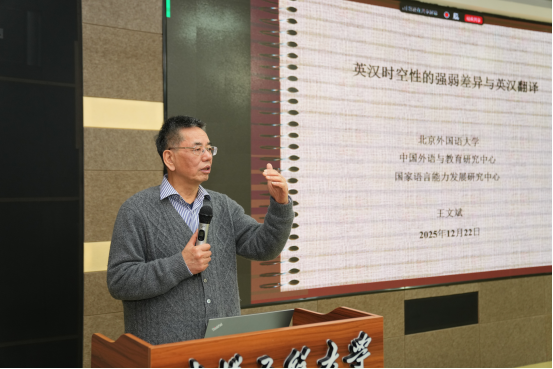 英汉时空性的强弱差异与英汉翻译
北京外国语大学
中国外语与教育研究中心
国家语言能力发展研究中心
王文斌
2025年12月22日